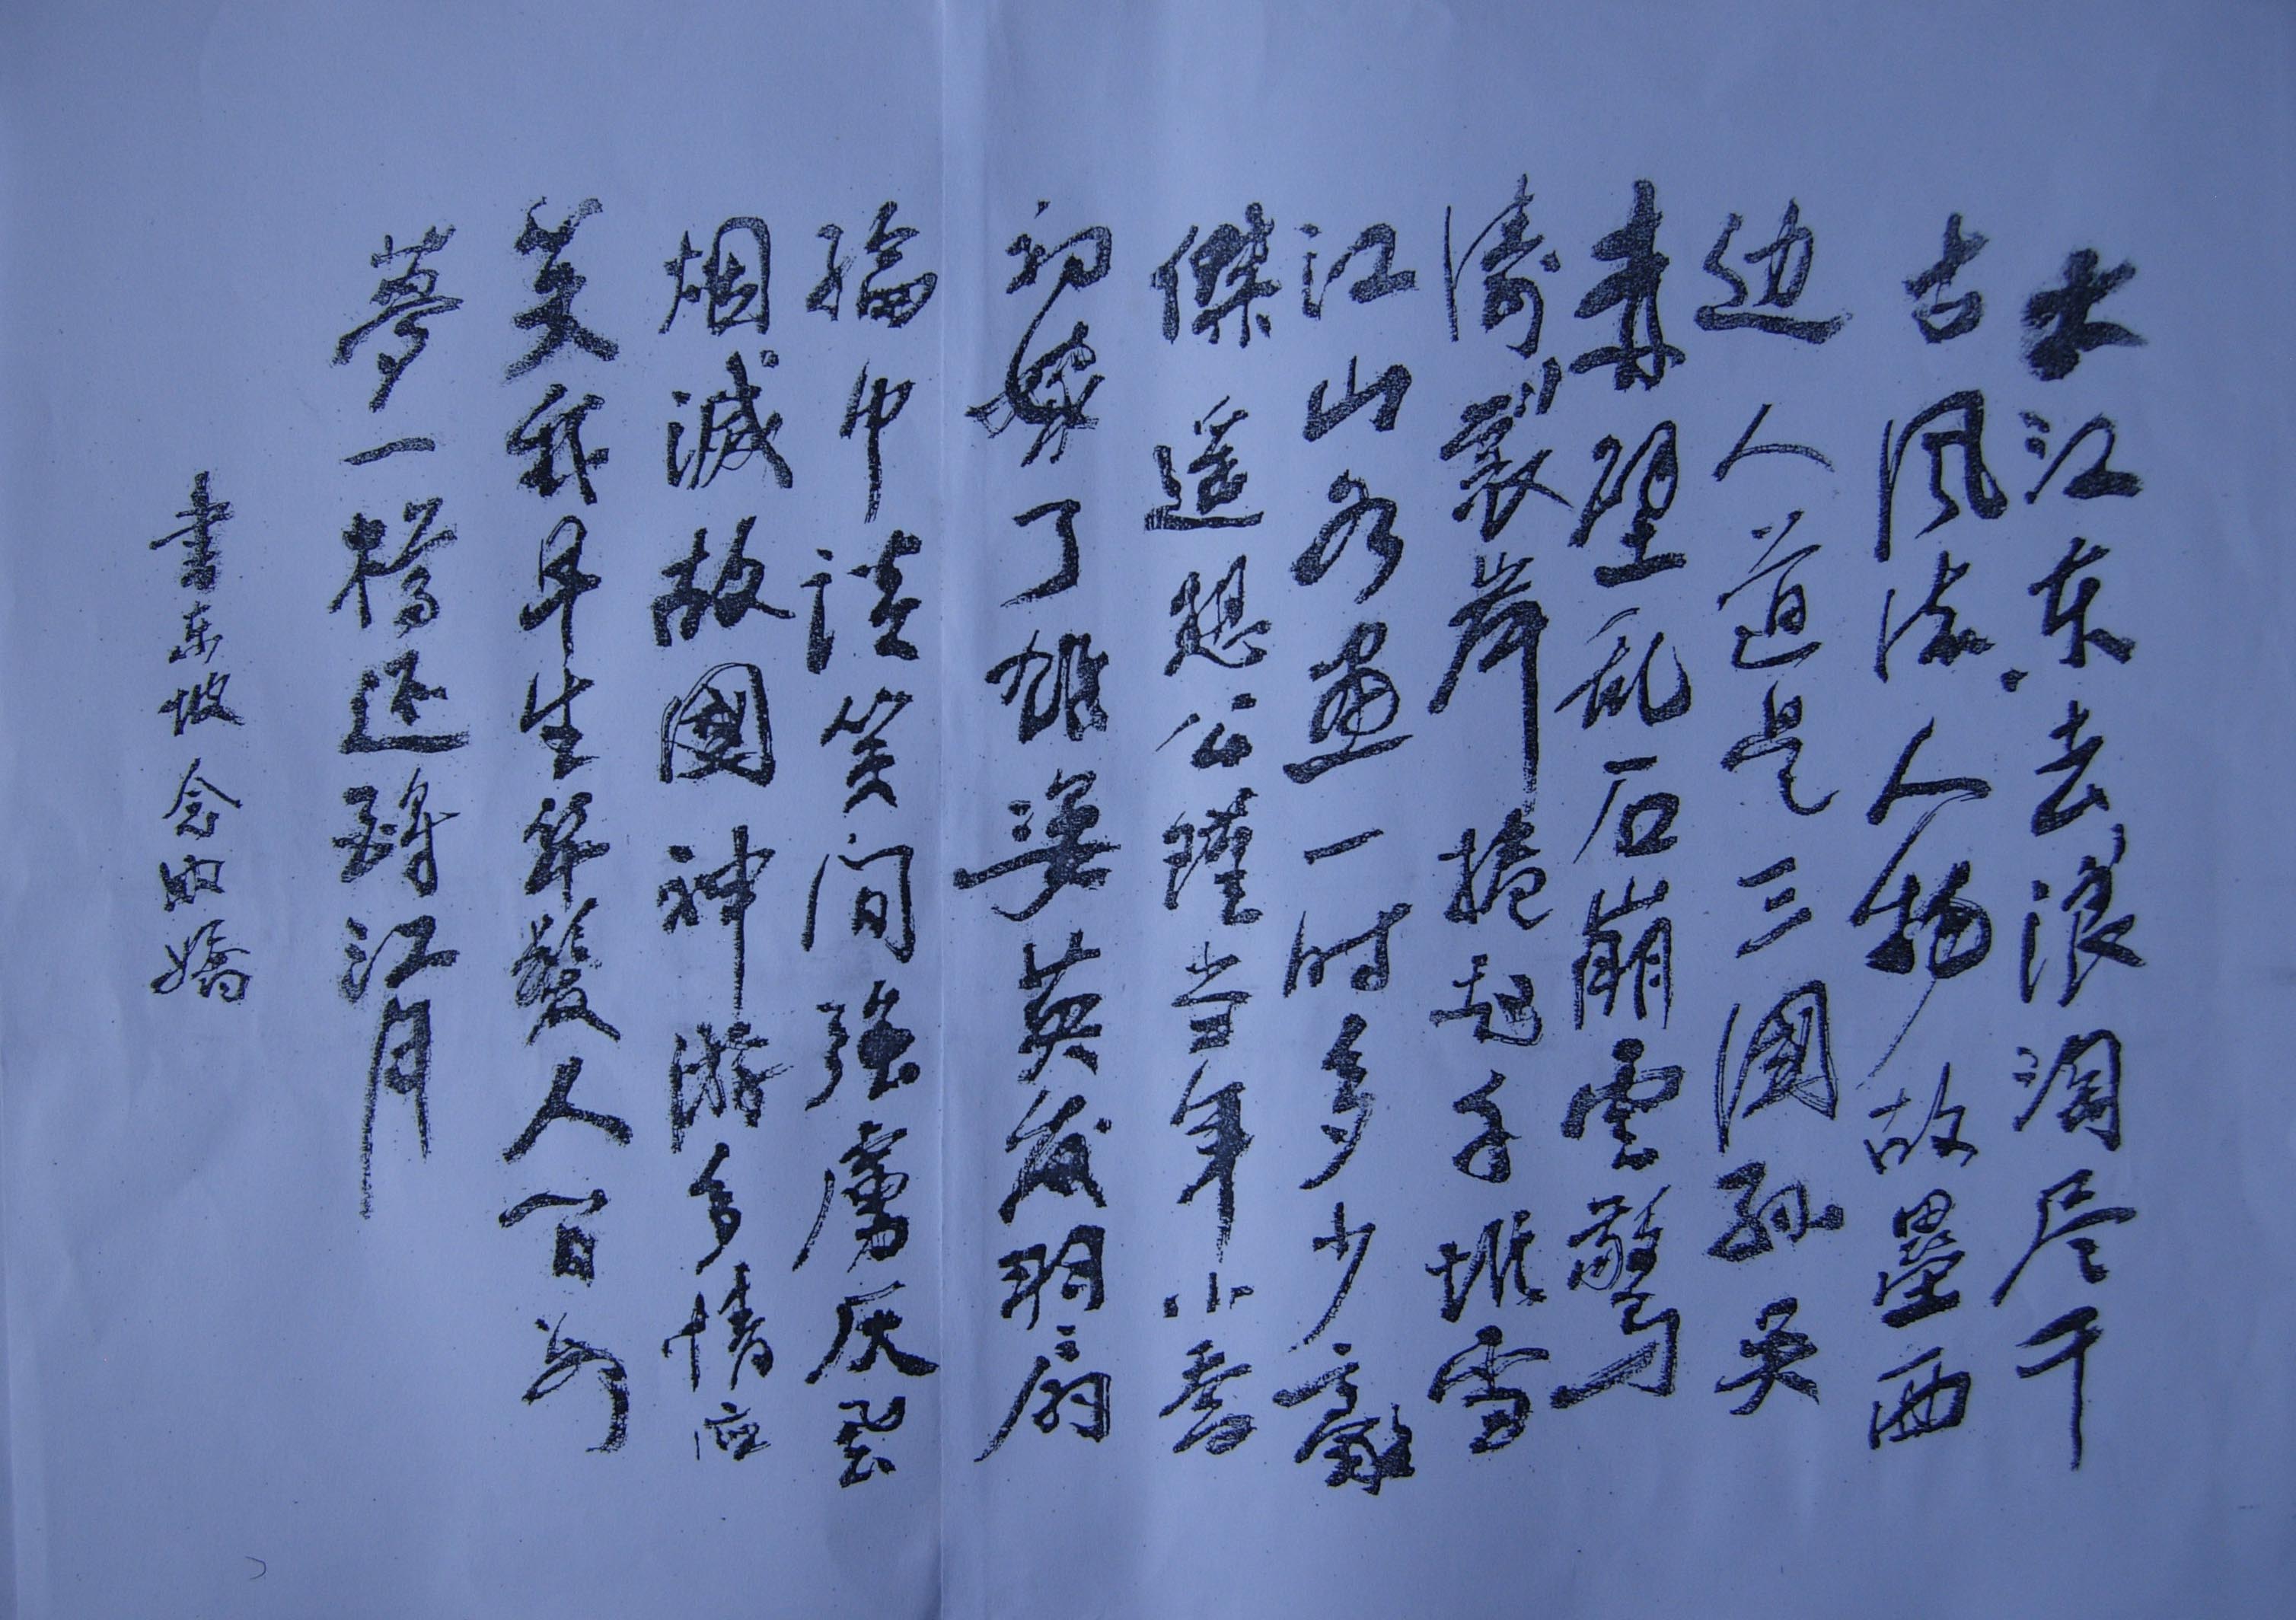 大江东去浪淘尽千
古风流人物故壘西
边人道是三國孙吴
赤壁乱石崩雲驚
涛裂岸捲起千堆雪
江山如畫一时多少豪
傑遥想公瑾当年小喬
初嫁了雄姿英发羽扇
綸巾谈笑间强虜灰飛
烟滅故國神游多情应
笑我早生华髮人间如
夢一樽还酹江月
書东坡念奴嬌